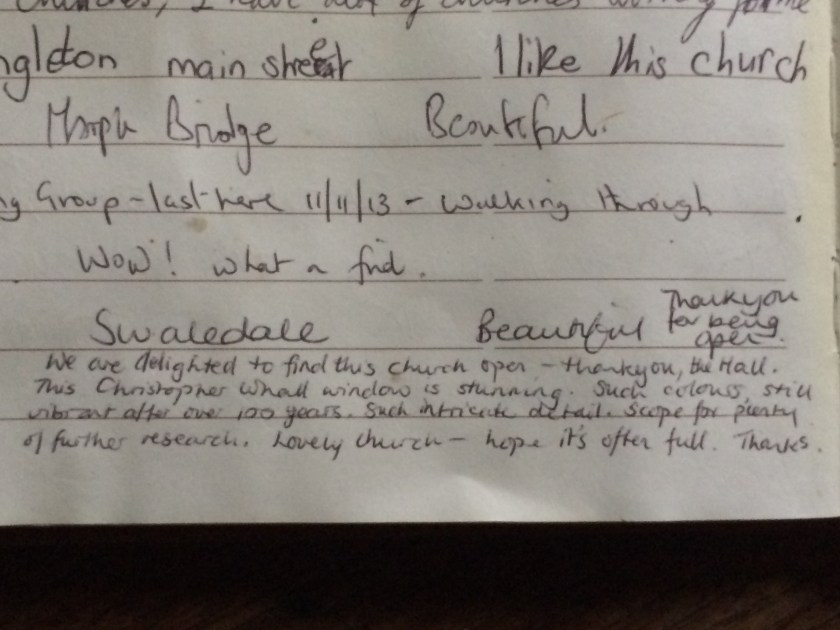 I have lots of churches
ngleton main street I like this church
Bridge Beautiful.
ng Group - last here 11/11/13 - walking through
Wow! what a find.
Swaledale Beautiful Thankyou for being open.
We are delighted to find this church open - thankyou, the Hall.
This Christopher Whall window is stunning. Such colours, still
vibrant after over 100 years. Such intricate detail. Scope for plenty
of further research. Lovely church - hope it's often full. Thanks.